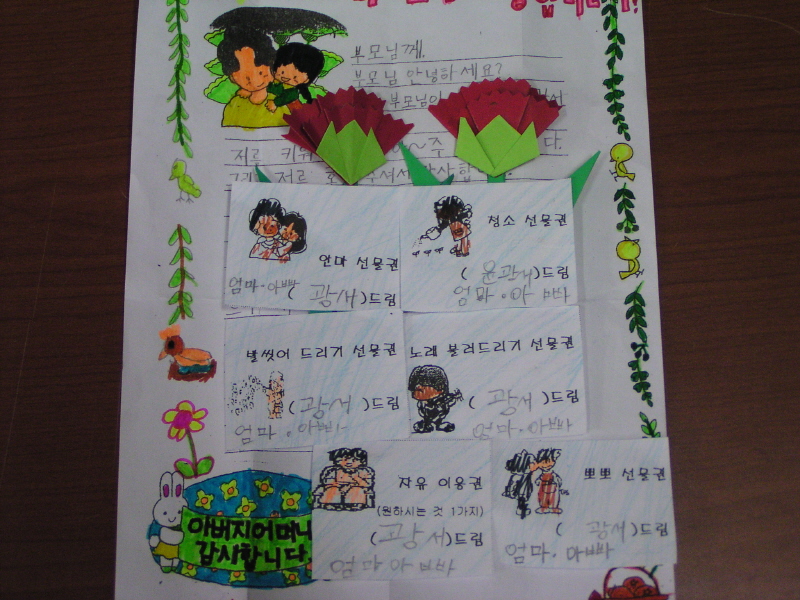 부모님께.
부모님 안녕하세요?
부모님이
저를 키워 주
다.
저를
안마 선물권
엄마·아빠 (광서)드림
청소 선물권
(윤광서)드림
엄마·아빠
발씻어 드리기 선물권
(광서)드림
엄마·아빠
노래 불러드리기 선물권
(광서)드림
엄마·아빠
자유 이용권
(원하시는 것 1가지)
(광서)드림
엄마 아빠
뽀뽀 선물권
(광서)드림
엄마·아빠
아버지어머니
감사합니다.